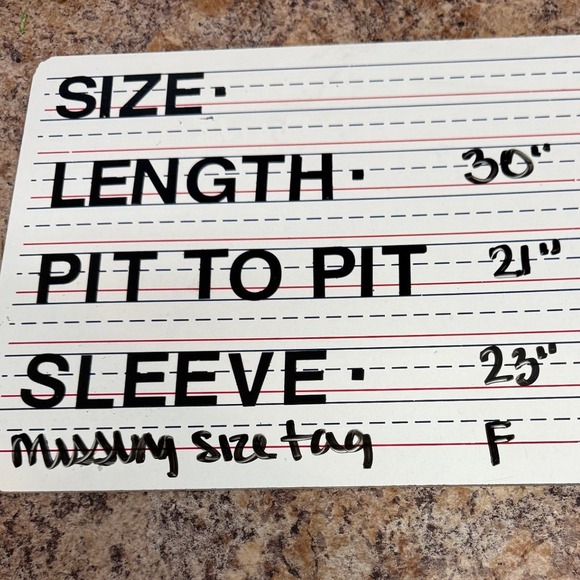 SIZE·
LENGTH· 30"
PIT TO PIT 21"
SLEEVE· 23"
missing size tag F